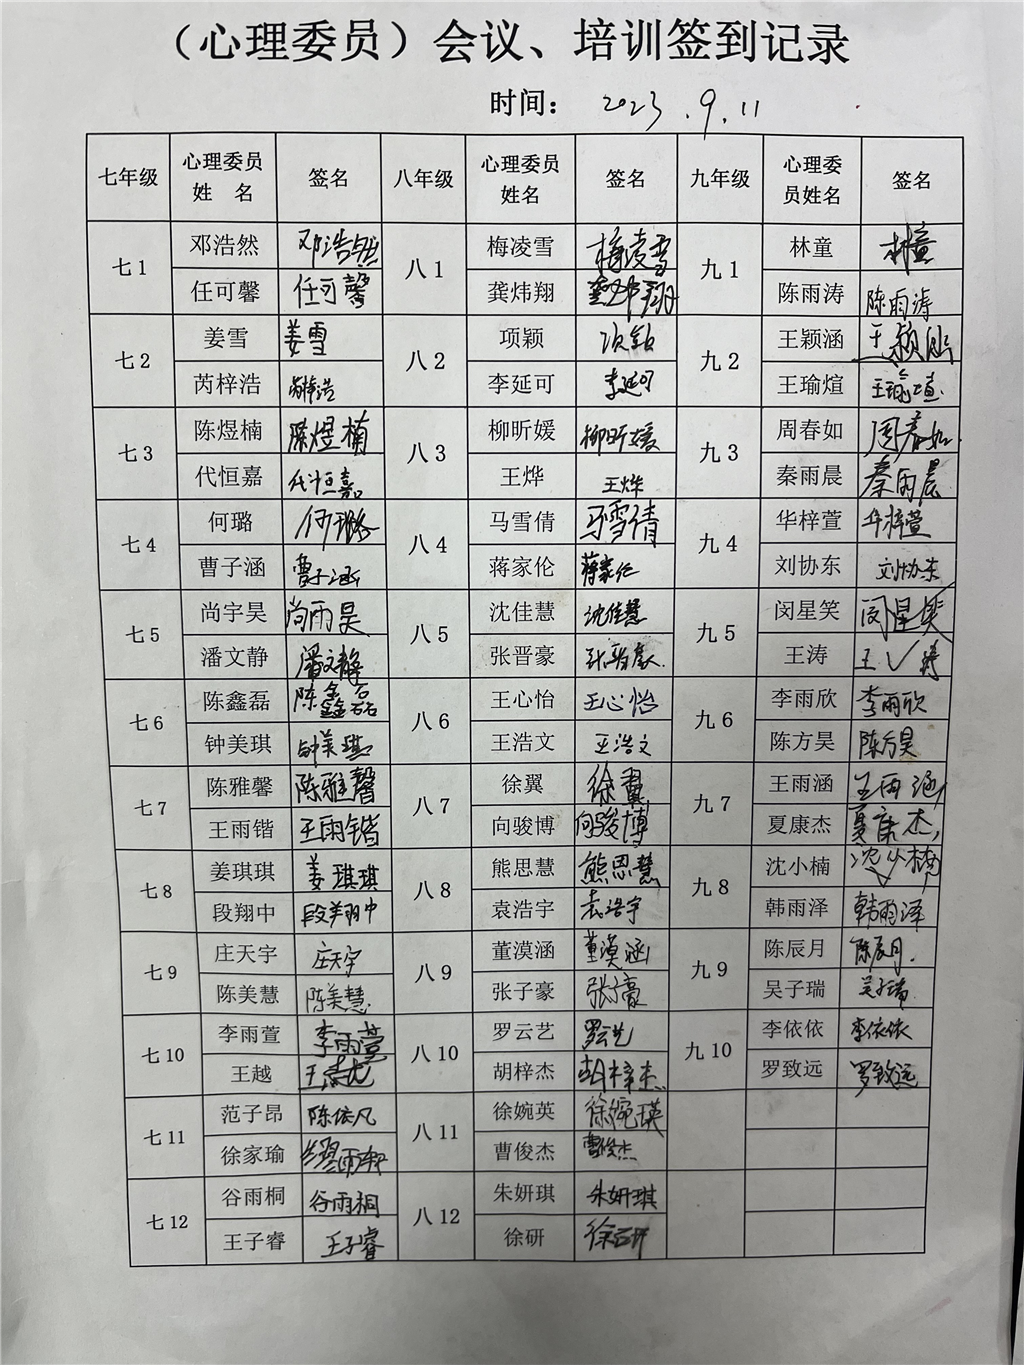 （心理委员）会议、培训签到记录
时间： 2023.9.11
七年级 心理委员姓 名 签名 八年级 心理委员姓名 签名 九年级 心理委员姓名 签名
七1 邓浩然 邓浩然 八1 梅凌雪 梅凌雪 九1 林童 林童
任可馨 任可馨 龚炜翔 龚炜翔 陈雨涛 陈雨涛
七2 姜雪 姜雪 八2 项颖 九2 王颖涵 王颖涵
芮梓浩 芮梓浩 李延可 李延可 王瑜煊 王瑜煊
七3 陈煜楠 陈煜楠 八3 柳昕媛 柳昕媛 九3 周春如 周春如
代恒嘉 代恒嘉 王烨 王烨 秦雨晨 秦雨晨
七4 何璐 何璐 八4 马雪倩 马雪倩 九4 华梓萱 华梓萱
曹子涵 曹子涵 蒋家伦 蒋家伦 刘协东 刘协东
七5 尚宇昊 尚雨昊 八5 沈佳慧 沈佳慧 九5 闵星笑 闵星笑
潘文静 潘文静 张晋豪 张晋豪 王涛 王涛
七6 陈鑫磊 陈鑫磊 八6 王心怡 王心怡 九6 李雨欣 李雨欣
钟美琪 钟美琪 王浩文 王浩文 陈方昊 陈方昊
七7 陈雅馨 陈雅馨 八7 徐翼 徐翼 九7 王雨涵 王雨涵
王雨锴 王雨锴 向骏博 向骏博 夏康杰 夏康杰
七8 姜琪琪 姜琪琪 八8 熊思慧 熊思慧 九8 沈小楠 沈小楠
段翔中 段翔中 袁浩宇 袁浩宇 韩雨泽 韩雨泽
七9 庄天宇 庄天宇 八9 董漠涵 董漠涵 九9 陈辰月 陈辰月
陈美慧 陈美慧 张子豪 张子豪 吴子瑞 吴子瑞
七10 李雨萱 李雨萱 八10 罗云艺 罗云艺 九10 李依依 李依依
王越 王越 胡梓杰 胡梓杰 罗致远 罗致远
七11 范子昂 陈依凡 八11 徐婉英 徐婉瑛
徐家瑜 曹俊杰 曹俊杰
七12 谷雨桐 谷雨桐 八12 朱妍琪 朱妍琪
王子睿 王子睿 徐研 徐研